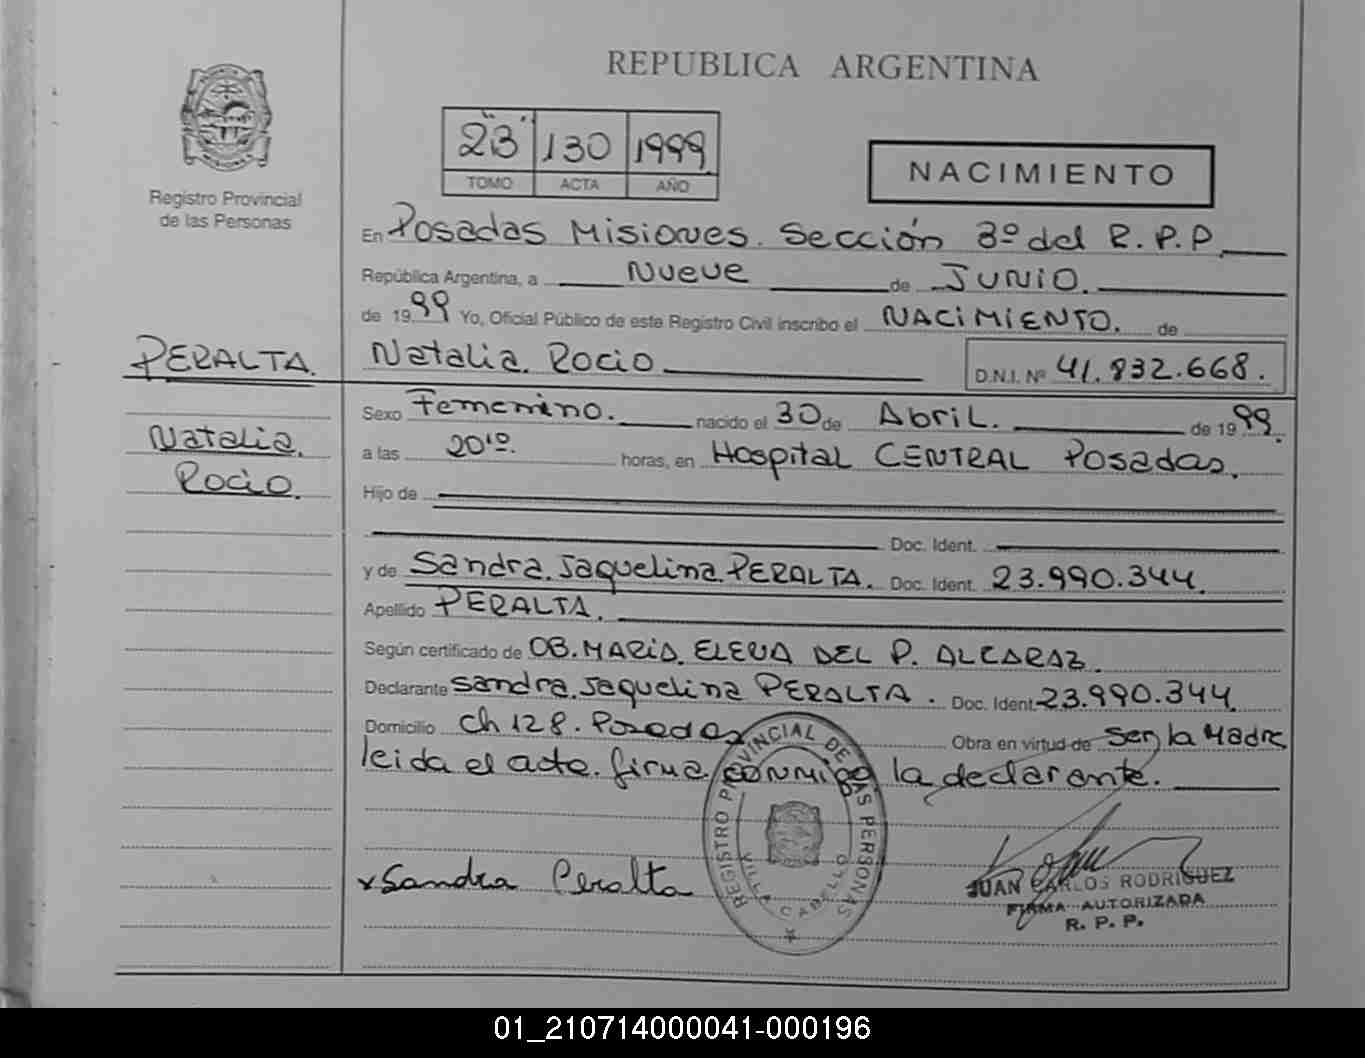 REPUBLICA ARGENTINA
"23" 130 1999
TOMO ACTA AÑO
NACIMIENTO
Registro Provincial
de las Personas
En Posadas Misiones. Sección 3º del R.P.P.
República Argentina, a Nueve de JUNIO.
de 1999 Yo, Oficial Público de este Registro Civil inscribo el NACIMIENTO. de
PERALTA. Natalia Rocio D.N.I. Nº 41.832.668.
Sexo Femenino. nacido el 30 de Abril. de 1999.
Natalia.
Rocio.
a las 20¹⁰. horas, en Hospital CENTRAL Posadas.
Hijo de
Doc. Ident.
y de Sandra Jaquelina PERALTA. Doc. Ident. 23.990.344.
Apellido PERALTA.
Según certificado de OB. MARIA ELENA DEL P. ALCARAZ.
Declarante Sandra Jaquelina PERALTA. Doc. Ident. 23.990.344.
Domicilio Ch 128. Posadas Obra en virtud de Ser la Madre
leida el acta. firma conmigo la declarante.
REGISTRO PROVINCIAL DE LAS PERSONAS
VILLA CABELLO
x Sandra Peralta
JUAN CARLOS RODRIGUEZ
FIRMA AUTORIZADA
R. P. P.
01_210714000041-000196